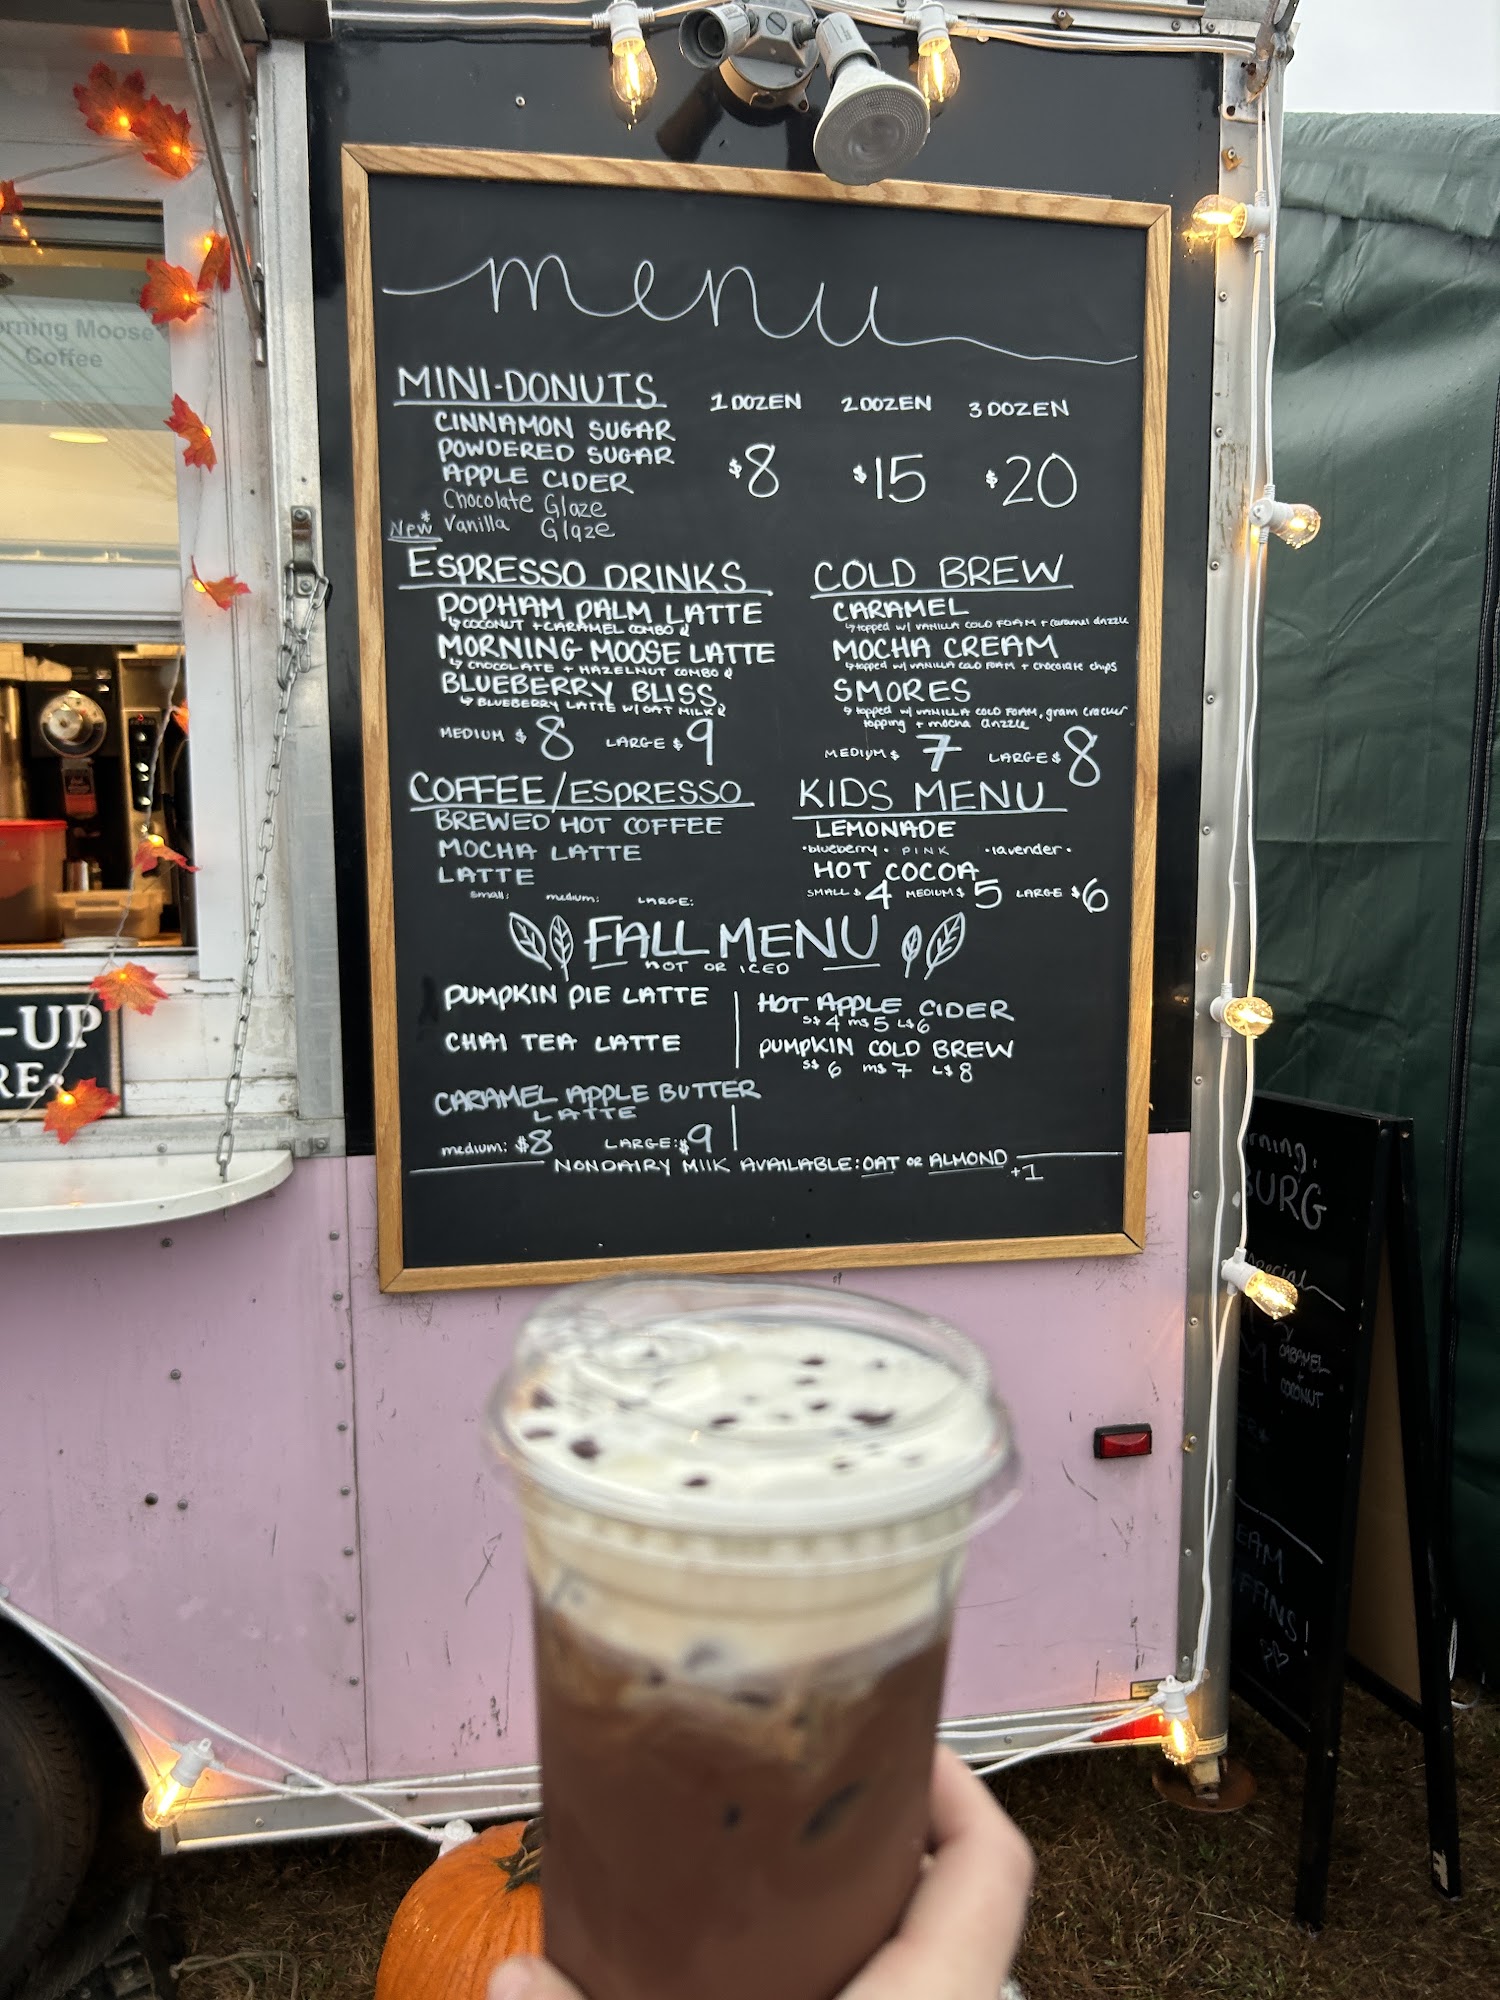 menu
MINI-DONUTS 1 DOZEN 2 DOZEN 3 DOZEN
CINNAMON SUGAR
POWDERED SUGAR
APPLE CIDER
$8 $15 $20
Chocolate Glaze
New* Vanilla Glaze
ESPRESSO DRINKS
POPHAM PALM LATTE
↳ COCONUT + CARAMEL COMBO
MORNING MOOSE LATTE
↳ CHOCOLATE + HAZELNUT COMBO
BLUEBERRY BLISS
↳ BLUEBERRY LATTE W/ OAT MILK
MEDIUM $8 LARGE $9
COLD BREW
CARAMEL
↳ topped w/ VANILLA COLD FOAM + caramel drizzle
MOCHA CREAM
↳ topped w/ VANILLA COLD FOAM + chocolate chips
SMORES
↳ topped w/ VANILLA COLD FOAM, gram cracker
topping + mocha drizzle
MEDIUM $7 LARGE $8
COFFEE/ESPRESSO
BREWED HOT COFFEE
MOCHA LATTE
LATTE
small: medium: LARGE:
KIDS MENU
LEMONADE
•blueberry• PINK •lavender•
HOT COCOA
SMALL $4 MEDIUM $5 LARGE $6
FALL MENU
HOT OR ICED
PUMPKIN PIE LATTE
CHAI TEA LATTE
CARAMEL APPLE BUTTER
LATTE
medium: $8 LARGE: $9
HOT APPLE CIDER
S$4 M$5 L$6
PUMPKIN COLD BREW
S$6 M$7 L$8
NONDAIRY MIlK AVAILABLE: OAT OR ALMOND +1
rning Moose
Coffee
-UP
RE
rning:
BURG
special
CARAMEL
+
COCONUT
EAM
FFINS!